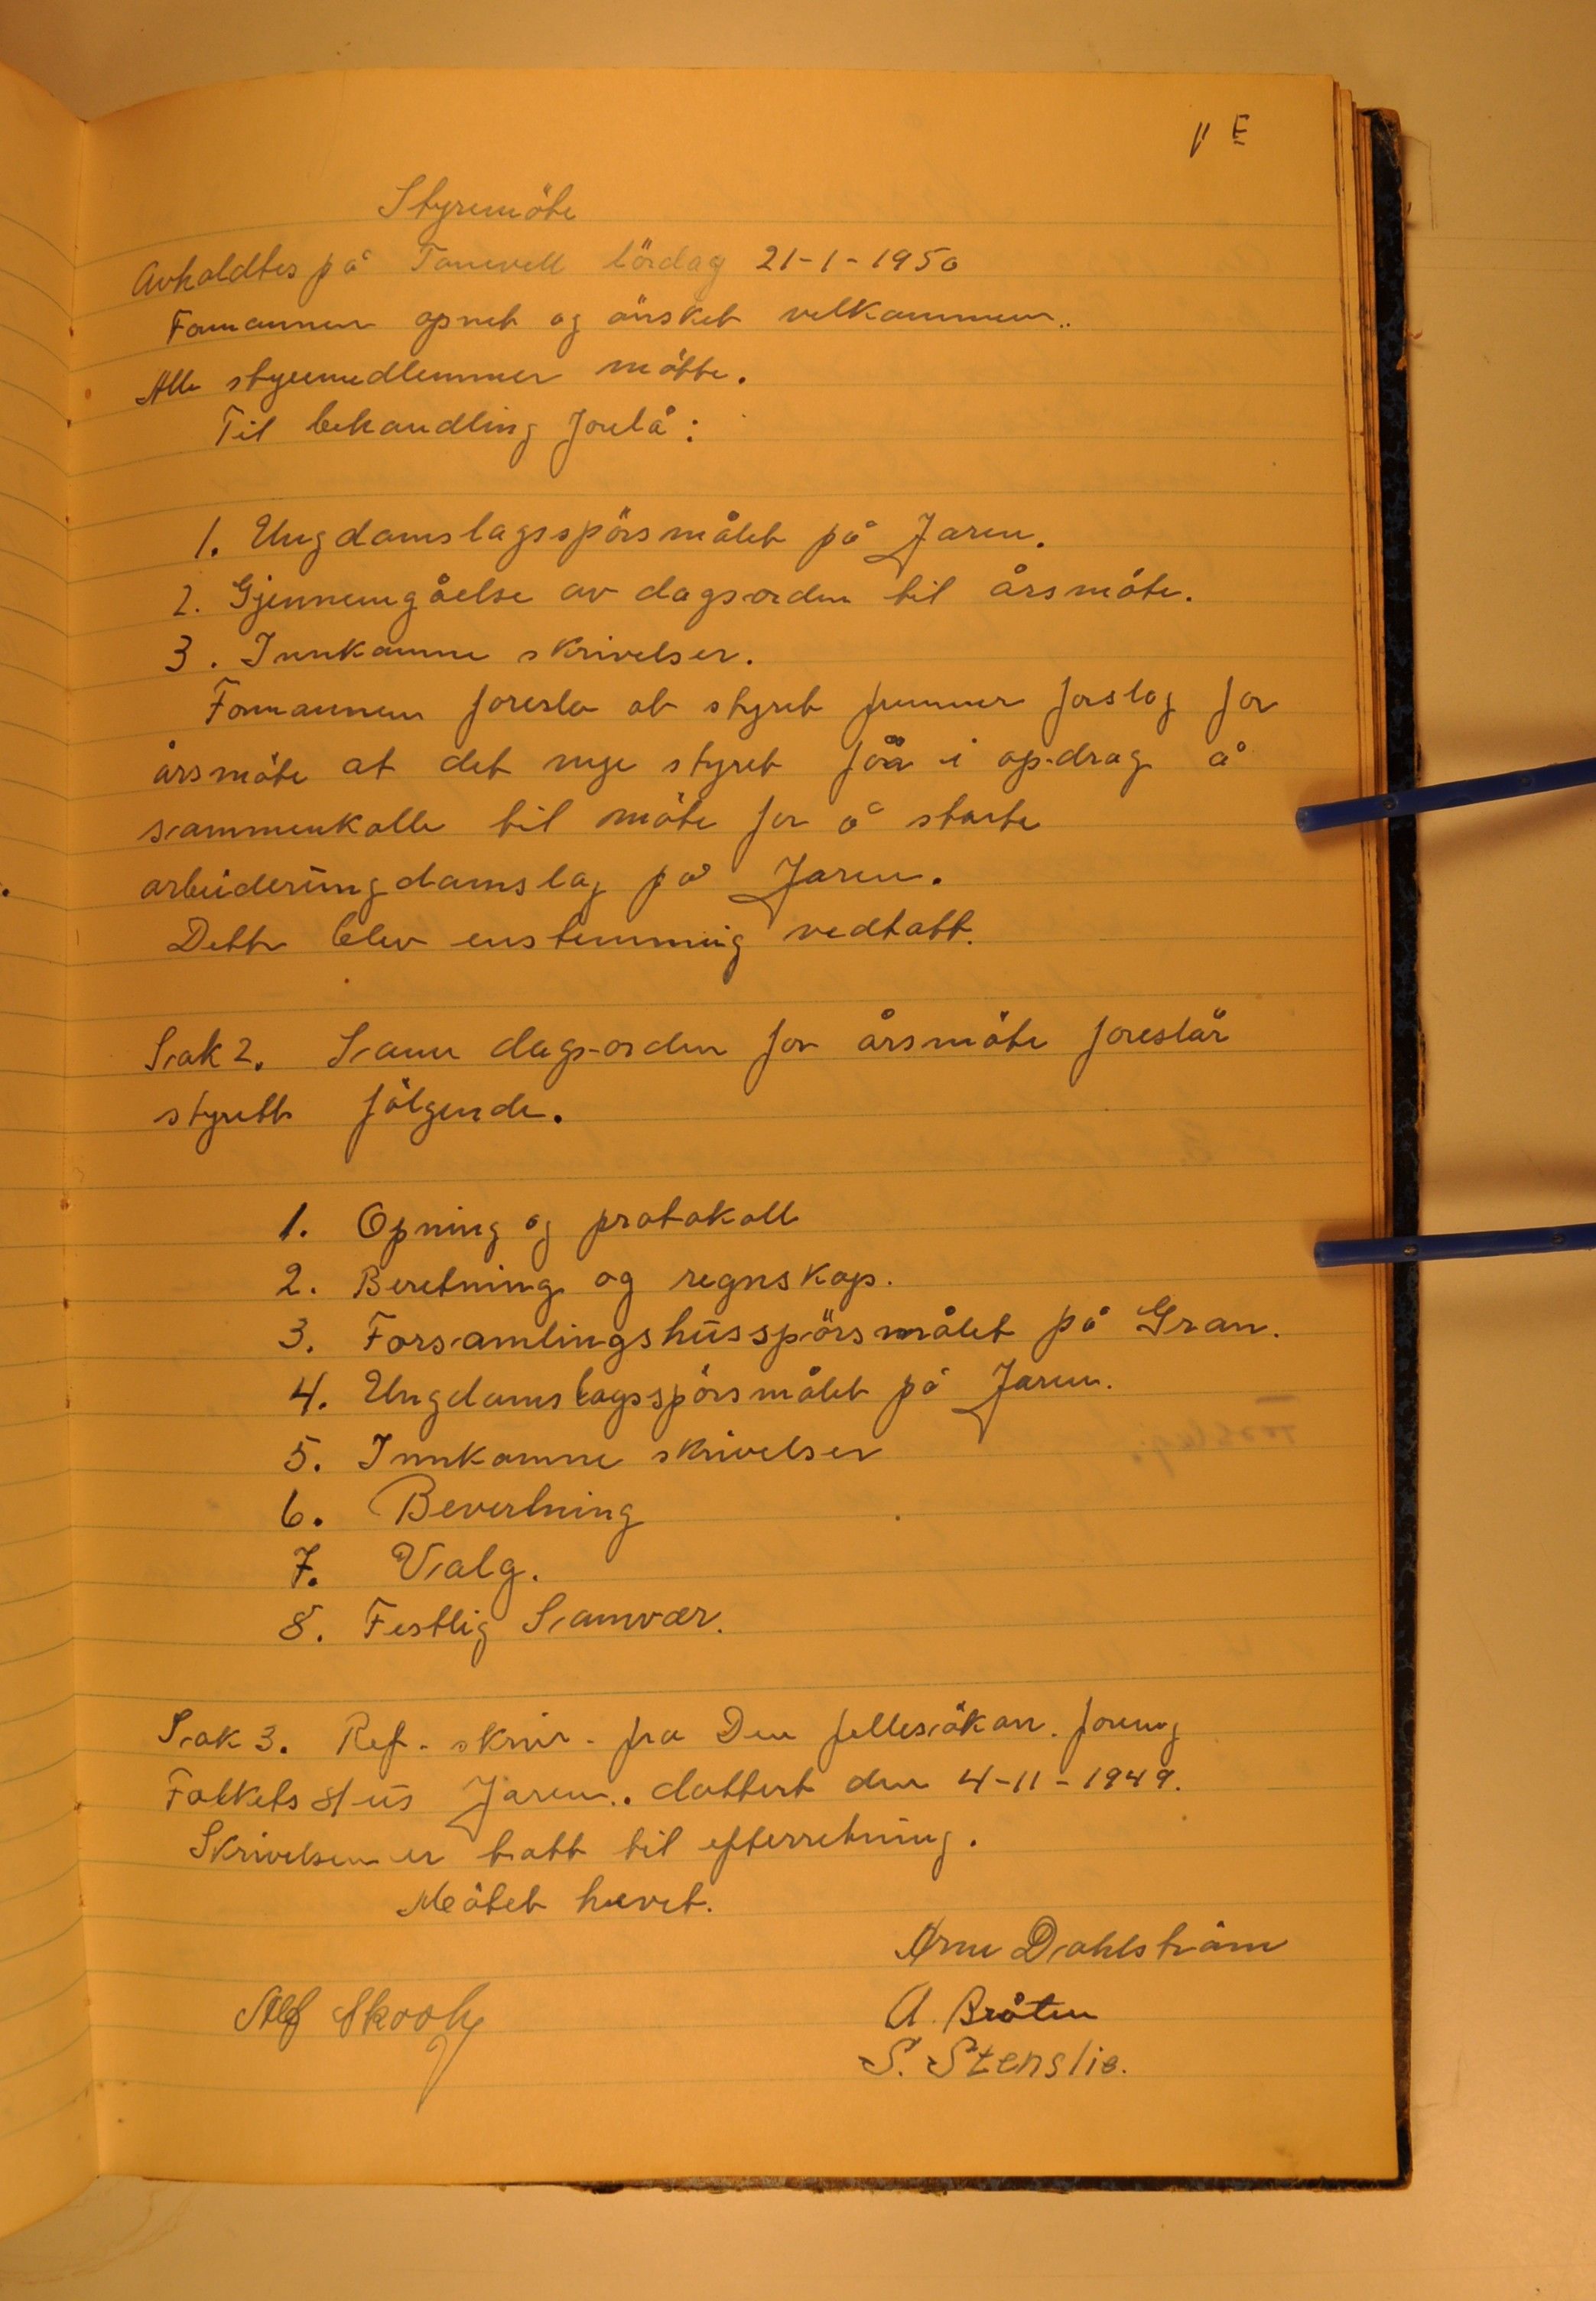 Styremöte
Avholdtes på Tonevell lördag 21-1-1950
Formannen opnet og önsket velkommen.
Alle styremedlemmer mötte.
Til behandling forelå:
1. Ungdomslagsspörsmålet på Jaren.
2. Gjennemgåelse av dagsorden til årsmöte.
3. Innkomne skrivelser.
Formannen foreslo at styret fremmer forslag for
årsmöte at det nye styret får i opdrag å
sammenkalle til möte for å starte
arbeiderungdomslag på Jaren.
Dette blev enstemmig vedtatt.
Sak 2. Som dagsorden for årsmöte foreslår
styrett fölgende.
1. Opning og protokoll
2. Beretning og regnskap.
3. Forsamlingshusspörsmålet på Gran.
4. Ungdomslagsspörsmålet på Jaren.
5. Innkomne skrivelser
6. Bevertning
7. Valg.
8. Festlig Samvær.
Sak 3. Ref. skriv. fra Den fellesökon. forening
Folkets Hus Jaren. dattert den 4-11-1949.
Skrivelsen er tatt til efterretning.
Mötet hevet.
Arne Dahlström
Alf Skooly A. Bråten
S. Stenslie.